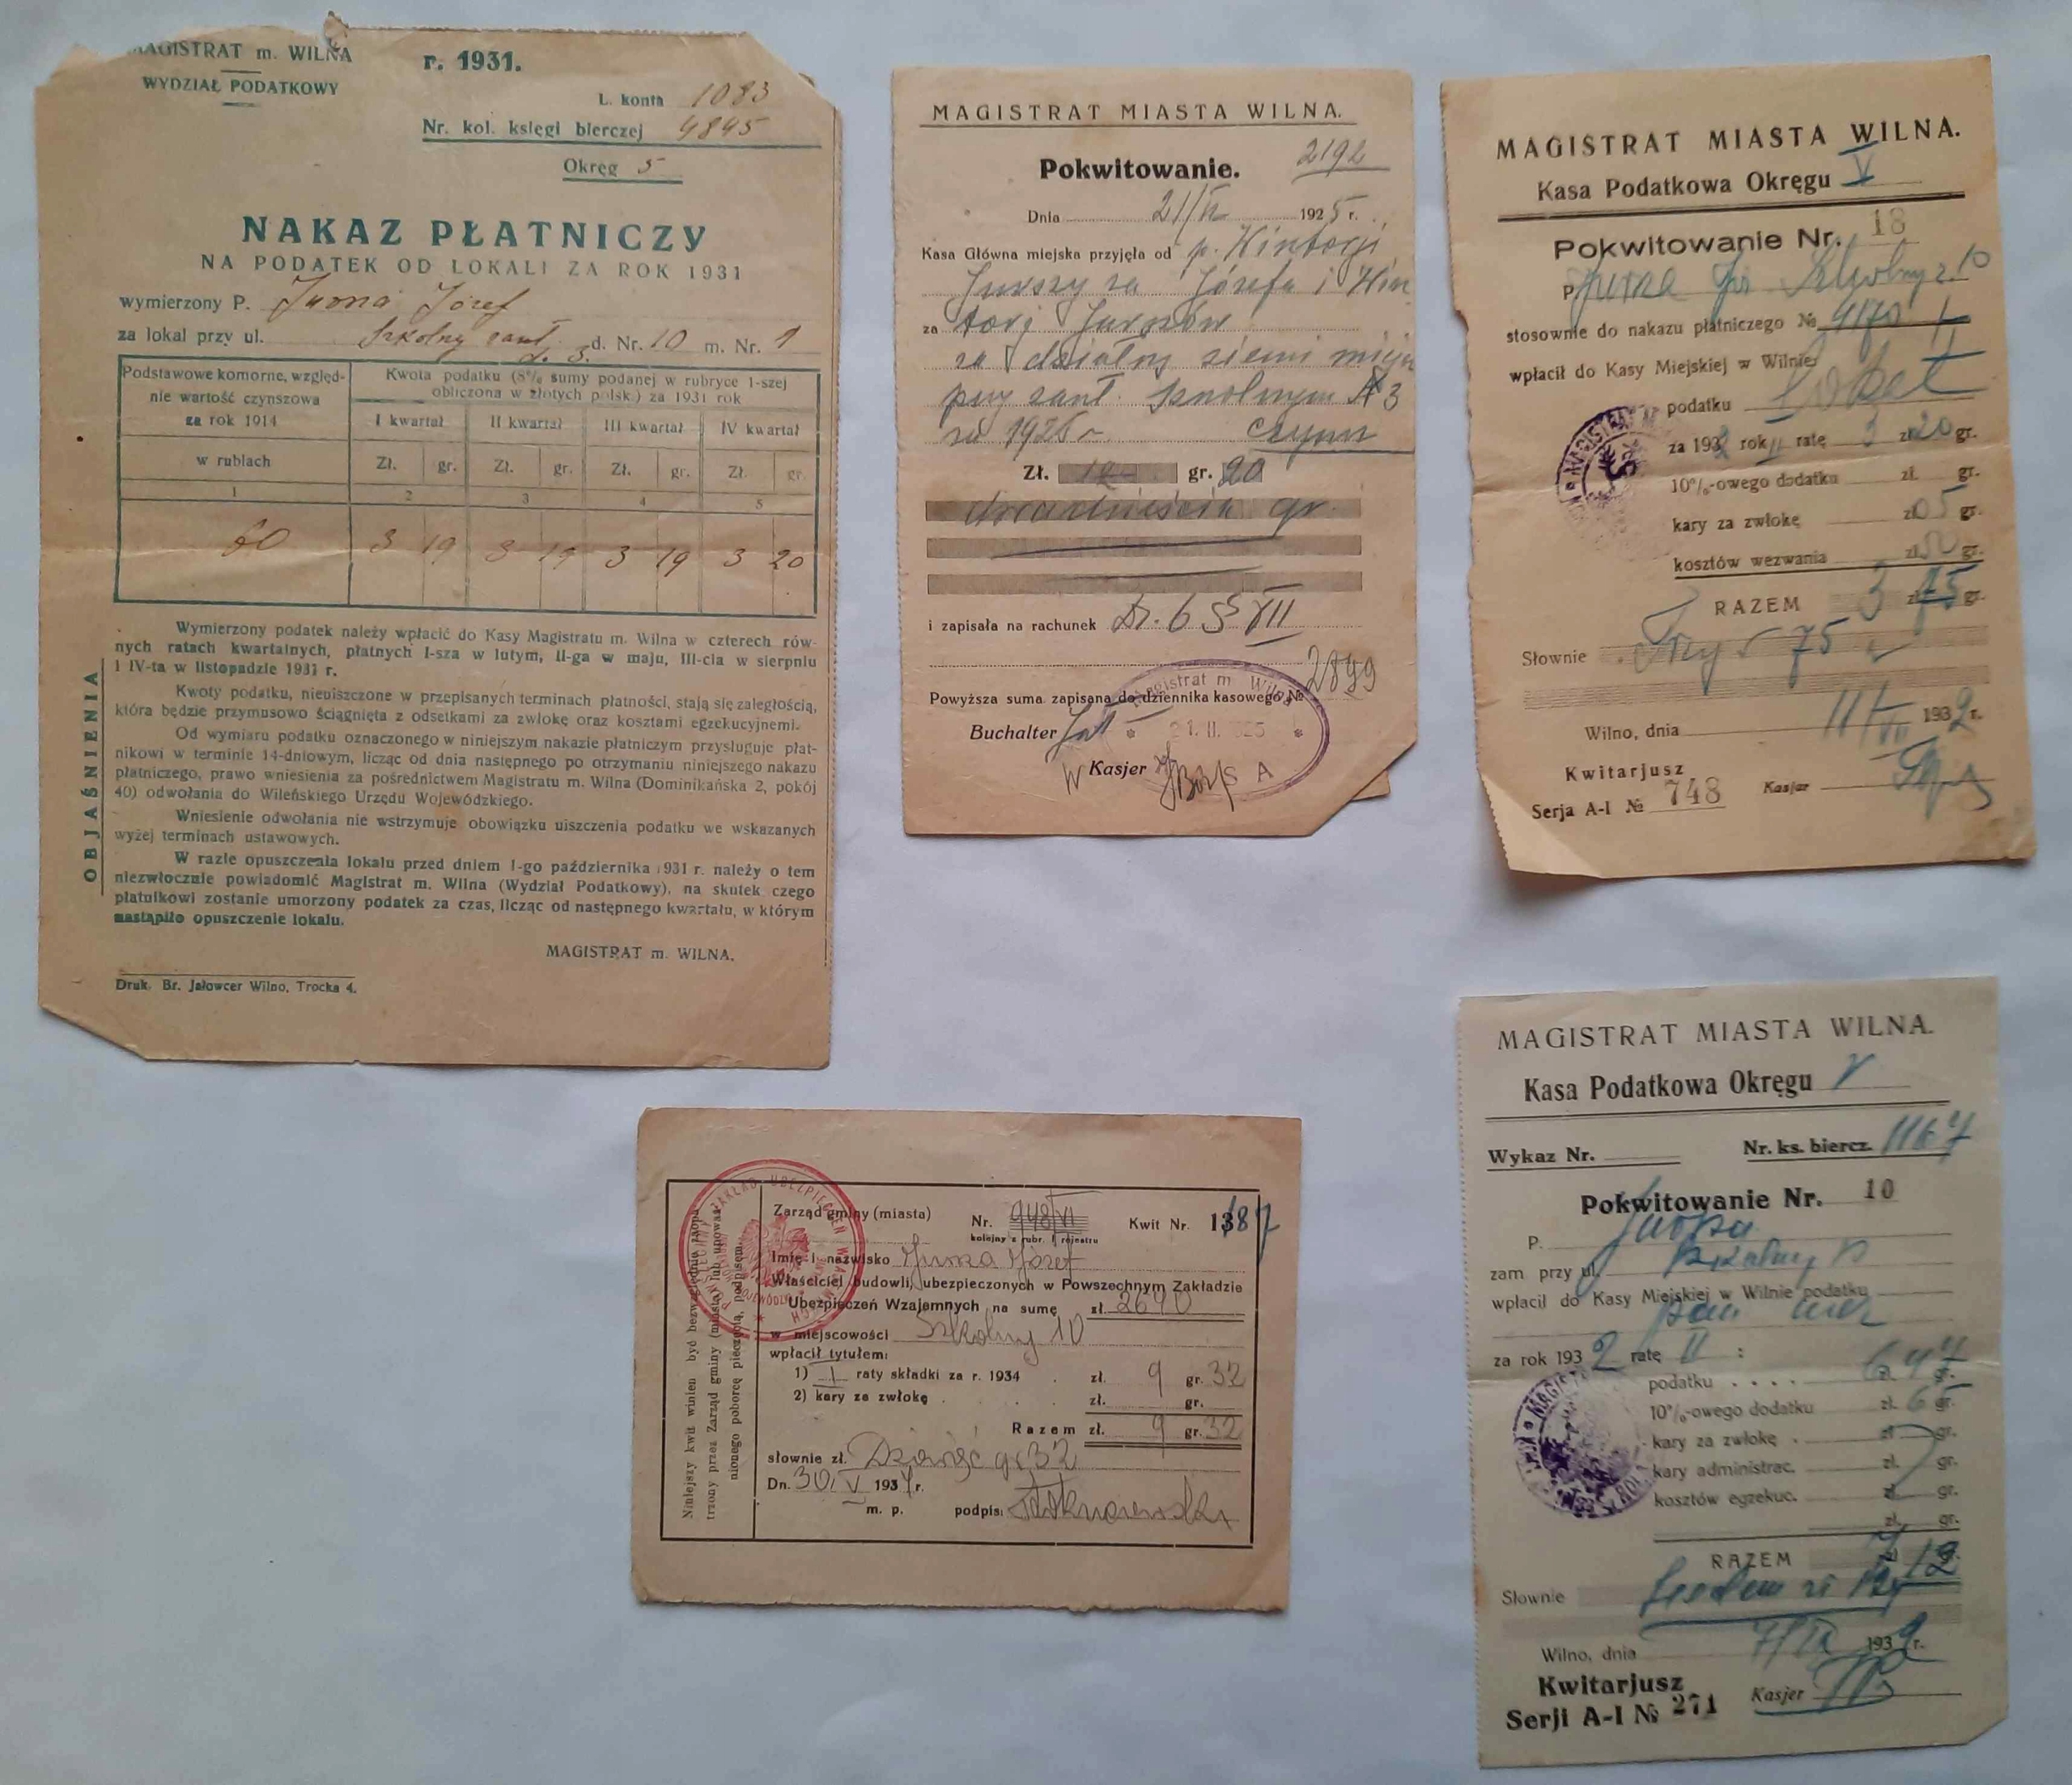 MAGISTRAT m. WILNA
WYDZIAŁ PODATKOWY
r. 1931.
L. konta 1083
Nr. kol. księgi bierczej 4845
Okręg 5
NAKAZ PŁATNICZY
NA PODATEK OD LOKALI ZA ROK 1931
wymierzony P. Józef
za lokal przy ul. Szkolny zauł. d. Nr. 10 m. Nr. 1
d. 3.
Podstawowe komorne, względ-
nie wartość czynszowa
za rok 1914
w rublach
Kwota podatku (8% sumy podanej w rubryce 1-szej
obliczona w złotych polsk.) za 1931 rok
I kwartał II kwartał III kwartał IV kwartał
Zł. gr. Zł. gr. Zł. gr. Zł. gr.
1 2 3 4 5
60 3 19 3 19 3 19 3 20
OBJAŚNIENIA
Wymierzony podatek należy wpłacić do Kasy Magistratu m. Wilna w czterech rów-
nych ratach kwartalnych, płatnych I-sza w lutym, II-ga w maju, III-cia w sierpniu
i IV-ta w listopadzie 1931 r.
Kwoty podatku, nieuiszczone w przepisanych terminach płatności, stają się zaległością,
która będzie przymusowo ściągnięta z odsetkami za zwłokę oraz kosztami egzekucyjnemi.
Od wymiaru podatku oznaczonego w niniejszym nakazie płatniczym przysługuje płat-
nikowi w terminie 14-dniowym, licząc od dnia następnego po otrzymaniu niniejszego nakazu
płatniczego, prawo wniesienia za pośrednictwem Magistratu m. Wilna (Dominikańska 2, pokój
40) odwołania do Wileńskiego Urzędu Wojewódzkiego.
Wniesienie odwołania nie wstrzymuje obowiązku uiszczenia podatku we wskazanych
wyżej terminach ustawowych.
W razie opuszczenia lokalu przed dniem 1-go października 1931 r. należy o tem
niezwłocznie powiadomić Magistrat m. Wilna (Wydział Podatkowy), na skutek czego
płatnikowi zostanie umorzony podatek za czas, licząc od następnego kwartału, w którym
nastąpiło opuszczenie lokalu.
MAGISTRAT m. WILNA.
Druk. Br. Jałowcer Wilno, Trocka 4.
MAGISTRAT MIASTA WILNA.
Pokwitowanie. 2192
Dnia 21/II 1925 r.
Kasa Główna miejska przyjęła od p. Wiktorji
za Józefa i Wik
za torj
za działny ziemi miejs
przy zauł. Szkolnym № 3
za 1925 r. czynsz
Zł. gr. 20
dwadzieścia gr.
i zapisała na rachunek Dz. 6 § VII
Powyższa suma zapisana do dziennika kasowego № 2899
Buchalter
Kasjer
Magistrat m. Wilna
* 21. II. 1925 *
KASA
MAGISTRAT MIASTA WILNA.
Kasa Podatkowa Okręgu V
Pokwitowanie Nr. 18
P. Szkolny z. 10
stosownie do nakazu płatniczego № 4170
wpłacił do Kasy Miejskiej w Wilnie
podatku Lokal
za 1932 rok II ratę 3 zł. 20 gr.
10%-owego dodatku zł. gr.
kary za zwłokę zł. 05 gr.
kosztów wezwania zł. 50 gr.
RAZEM 3 zł. 75 gr.
Słownie Trzy 75
Wilno, dnia 1932 r.
Kwitarjusz
Serja A-I № 748 Kasjer
Zarząd gminy (miasta) Nr. 948/VI Kwit Nr. 1387
kolejny z rubr. 1 rejestru
Imię i nazwisko Józef
Właściciel budowli, ubezpieczonych w Powszechnym Zakładzie
Ubezpieczeń Wzajemnych na sumę zł. 2690
w miejscowości Szkolny 10
wpłacił tytułem:
1) I raty składki za r. 1934 zł. 9 gr. 32
2) kary za zwłokę zł. gr.
Razem zł. 9 gr. 32
słownie zł. Dziewięć gr 32
Dn. 30. V 1934 r.
m. p. podpis:
Niniejszy kwit winien być bezwzględnie zaopa-
trzony przez Zarząd gminy (miasta) lub upoważ-
nionego poborcę pieczęcią, podpisem.
MAGISTRAT MIASTA WILNA.
Kasa Podatkowa Okręgu V
Wykaz Nr. Nr. ks. biercz. 1167
Pokwitowanie Nr. 10
P.
zam przy ul. Szkolny 10
wpłacił do Kasy Miejskiej w Wilnie podatku
za rok 1932 ratę II :
podatku 6 zł. 47 gr.
10%-owego dodatku zł. 65 gr.
kary za zwłokę zł. gr.
kary administrac. zł. gr.
kosztów egzekuc. zł. gr.
zł. gr.
RAZEM 7 zł. 12 gr.
Słownie siedem zł 12 gr
Wilno, dnia 1932 r.
Kwitarjusz
Serji A-I № 271 Kasjer